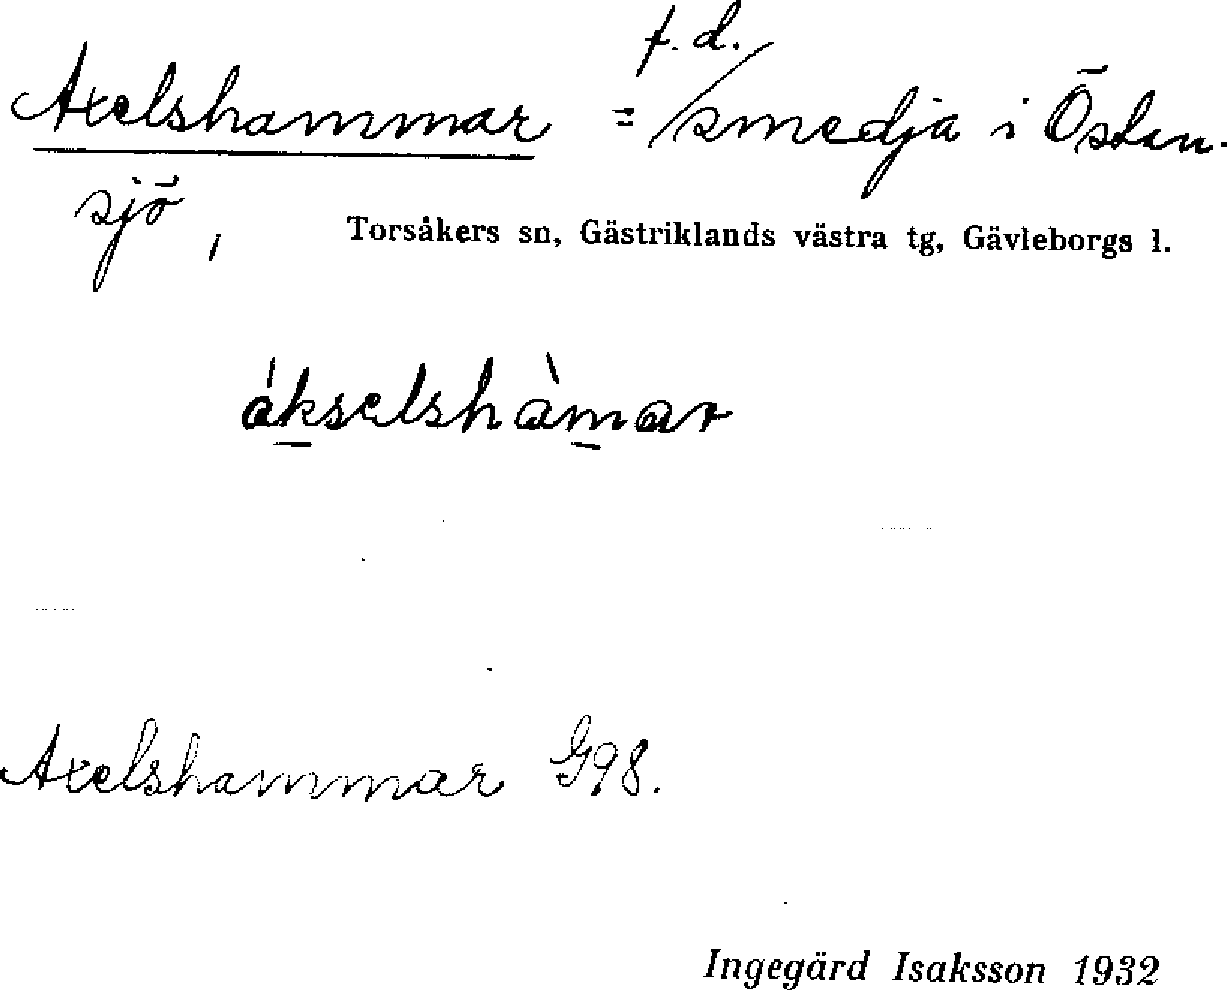 Axelshammar = f.d. smedja i Östan-
sjö, Torsåkers sn, Gästriklands västra tg, Gävleborgs l.
ákselshàmar
Axelshammar G98.
Ingegärd Isaksson 1932